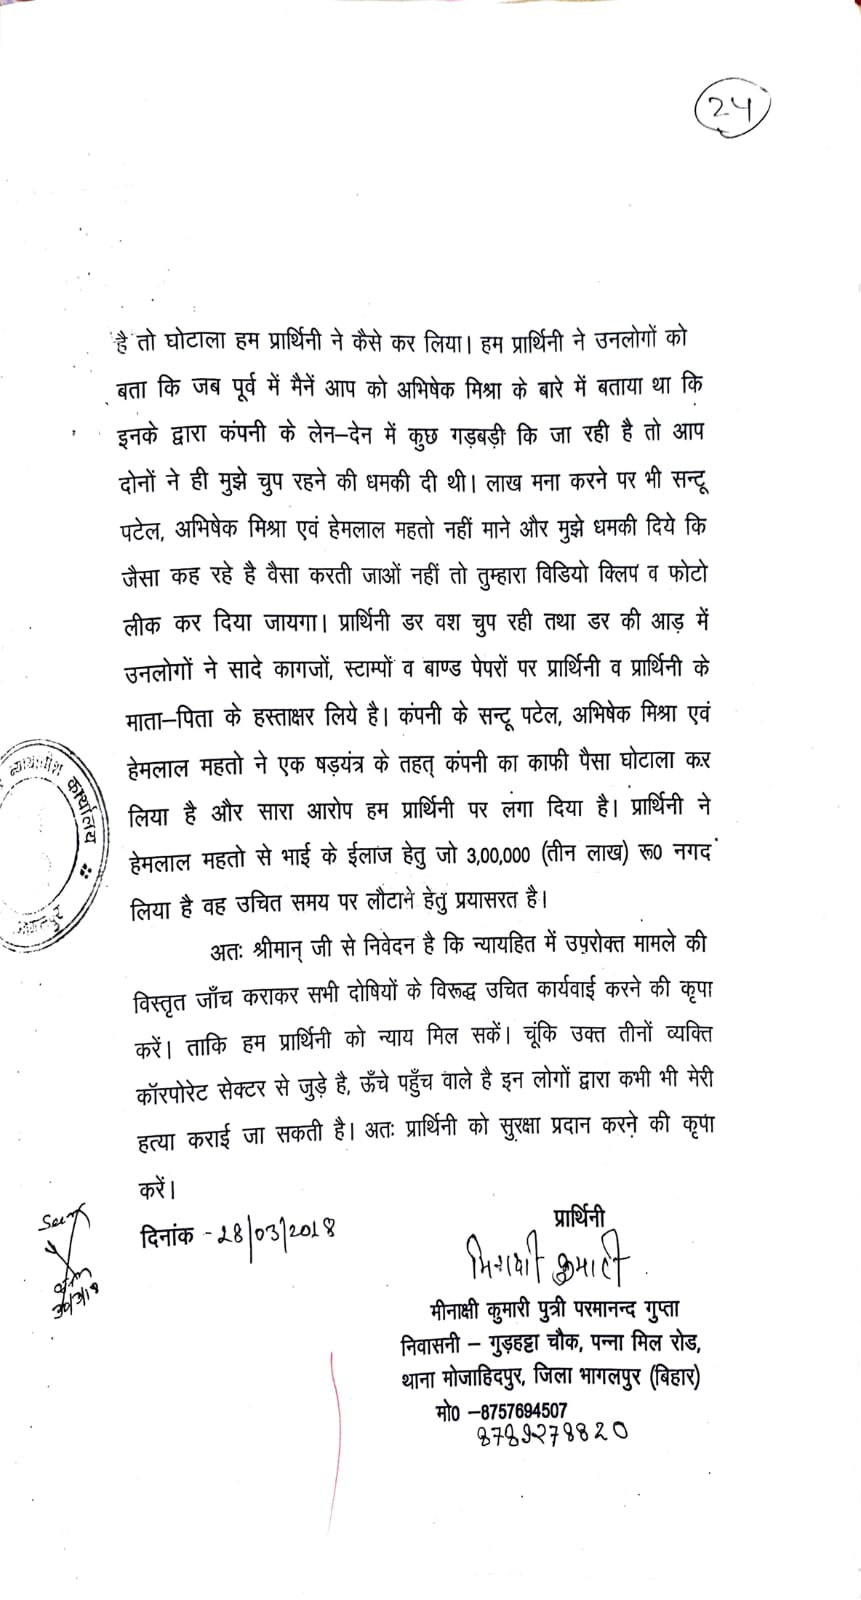 24
है तो घोटाला हम प्रार्थिनी ने कैसे कर लिया। हम प्रार्थिनी ने उनलोगों को
बता कि जब पूर्व में मैनें आप को अभिषेक मिश्रा के बारे में बताया था कि
इनके द्वारा कंपनी के लेन–देन में कुछ गड़बड़ी कि जा रही है तो आप
दोनों ने ही मुझे चुप रहने की धमकी दी थी। लाख मना करने पर भी सन्टू
पटेल, अभिषेक मिश्रा एवं हेमलाल महतो नहीं माने और मुझे धमकी दिये कि
जैसा कह रहे है वैसा करती जाओं नहीं तो तुम्हारा विडियो क्लिप व फोटो
लीक कर दिया जायगा। प्रार्थिनी डर वश चुप रही तथा डर की आड़ में
उनलोगों ने सादे कागजों, स्टाम्पों व बाण्ड पेपरों पर प्रार्थिनी व प्रार्थिनी के
माता–पिता के हस्ताक्षर लिये है। कंपनी के सन्टू पटेल, अभिषेक मिश्रा एवं
हेमलाल महतो ने एक षड़यंत्र के तहत् कंपनी का काफी पैसा घोटाला कर
लिया है और सारा आरोप हम प्रार्थिनी पर लगा दिया है। प्रार्थिनी ने
हेमलाल महतो से भाई के ईलाज हेतु जो 3,00,000 (तीन लाख) रू0 नगद
लिया है वह उचित समय पर लौटाने हेतु प्रयासरत है।
अतः श्रीमान् जी से निवेदन है कि न्यायहित में उपरोक्त मामले की
विस्तृत जाँच कराकर सभी दोषियों के विरूद्ध उचित कार्यवाई करने की कृपा
करें। ताकि हम प्रार्थिनी को न्याय मिल सकें। चूंकि उक्त तीनों व्यक्ति
कॉरपोरेट सेक्टर से जुड़े है, ऊँचे पहुँच वाले है इन लोगों द्वारा कभी भी मेरी
हत्या कराई जा सकती है। अतः प्रार्थिनी को सुरक्षा प्रदान करने की कृपा
करें।
न्यायाधीश कार्यालय
Seen
दिनांक -28/03/2018
प्रार्थिनी
मिनाक्षी कुमारी
मीनाक्षी कुमारी पुत्री परमानन्द गुप्ता
निवासनी – गुड़हट्टा चौक, पन्ना मिल रोड,
थाना मोजाहिदपुर, जिला भागलपुर (बिहार)
मो0 –8757694507
8789278820